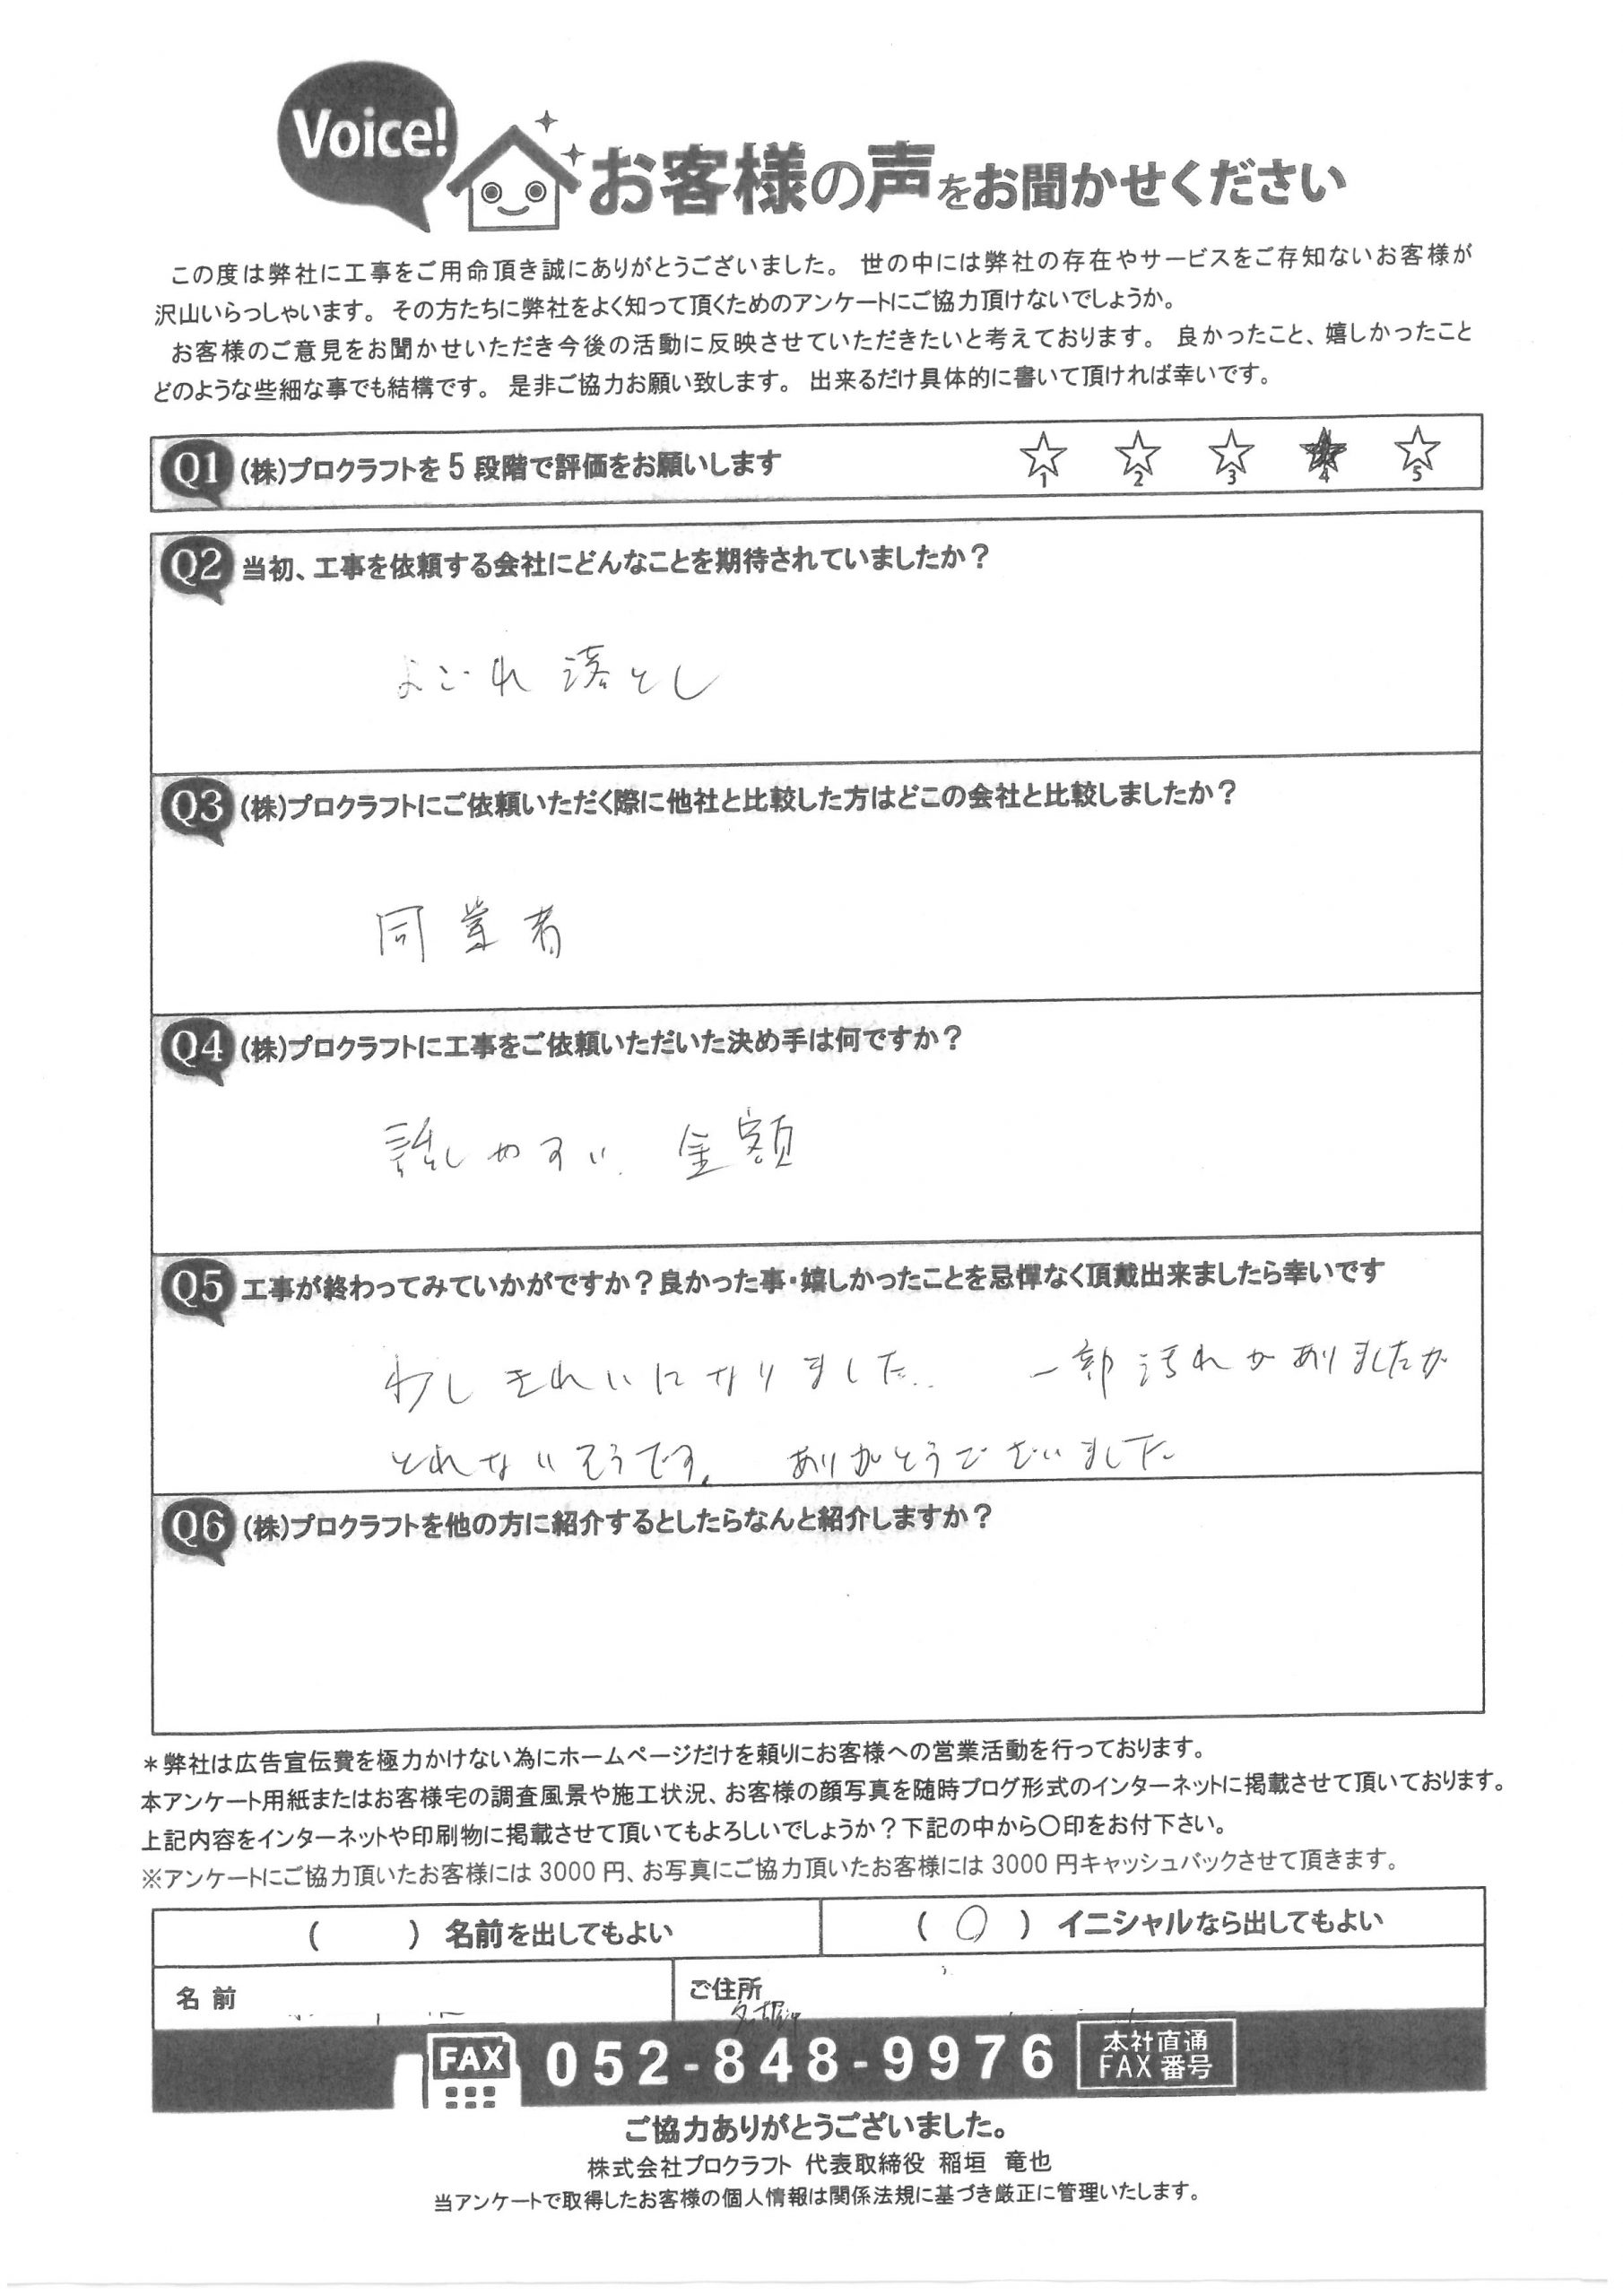 Voice!
お客様の声をお聞かせください
この度は弊社に工事をご用命頂き誠にありがとうございました。 世の中には弊社の存在やサービスをご存知ないお客様が
沢山いらっしゃいます。 その方たちに弊社をよく知って頂くためのアンケートにご協力頂けないでしょうか。
お客様のご意見をお聞かせいただき今後の活動に反映させていただきたいと考えております。 良かったこと、嬉しかったこと
どのような些細な事でも結構です。 是非ご協力お願い致します。 出来るだけ具体的に書いて頂ければ幸いです。
Q1 (株)プロクラフトを5段階で評価をお願いします ☆1 ☆2 ☆3 ★4 ☆5
Q2 当初、工事を依頼する会社にどんなことを期待されていましたか?
よごれ落とし
Q3 (株)プロクラフトにご依頼いただく際に他社と比較した方はどこの会社と比較しましたか?
同業者
Q4 (株)プロクラフトに工事をご依頼いただいた決め手は何ですか?
話しやすい 金額
Q5 工事が終わってみていかがですか?良かった事・嬉しかったことを忌憚なく頂戴出来ましたら幸いです
きれいになりました。 一部汚れがありましたが
とれないそうです。 ありがとうございました
Q6 (株)プロクラフトを他の方に紹介するとしたらなんと紹介しますか?
*弊社は広告宣伝費を極力かけない為にホームページだけを頼りにお客様への営業活動を行っております。
本アンケート用紙またはお客様宅の調査風景や施工状況、お客様の顔写真を随時ブログ形式のインターネットに掲載させて頂いております。
上記内容をインターネットや印刷物に掲載させて頂いてもよろしいでしょうか?下記の中から〇印をお付下さい。
※アンケートにご協力頂いたお客様には3000円、お写真にご協力頂いたお客様には3000円キャッシュバックさせて頂きます。
( ) 名前を出してもよい (〇) イニシャルなら出してもよい
名前 ご住所
FAX 052-848-9976 本社直通
FAX番号
ご協力ありがとうございました。
株式会社プロクラフト 代表取締役 稲垣 竜也
当アンケートで取得したお客様の個人情報は関係法規に基づき厳正に管理いたします。